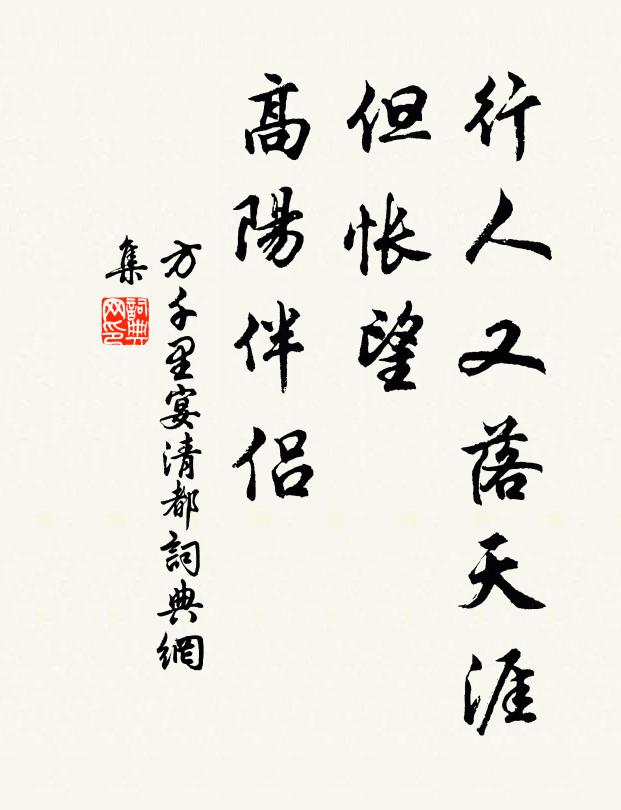 行人又落天涯
但悵望
高陽伴侶
方千里宴清都詞典網
集
詞典
网印